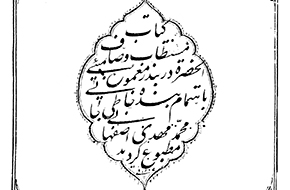 کتاب
مستطاب وصاف
الحضرة در بندر معمور بمبئی
باهتمام بنده
محمد مهدی اصفهانی
مطبوع گردید